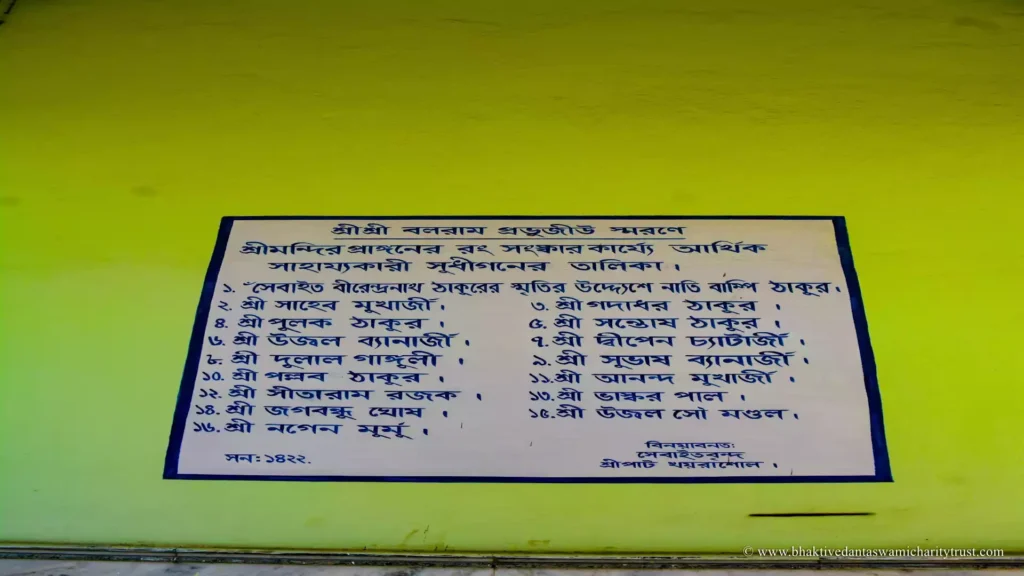 শ্রীশ্রী বলরাম প্রভুজীউ স্মরণে
শ্রীমন্দির প্রাঙ্গনের রং সংস্কার কার্য্যে আর্থিক
সাহায্যকারী সুধীগনের তালিকা।
১. সেবাইত ধীরেন্দ্রনাথ ঠাকুরের স্মৃতির উদ্দেশ্যে নাতি বাম্পি ঠাকুর।
২. শ্রী সাহেব মুখার্জী। ৩. শ্রী গদাধর ঠাকুর।
৪. শ্রী পুলক ঠাকুর। ৫. শ্রী সন্তোষ ঠাকুর।
৬. শ্রী উজ্জল ব্যানার্জী। ৭. শ্রী দ্বীপেন চ্যাটার্জী।
৮. শ্রী দুলাল গাঙ্গুলী। ৯. শ্রী সুভাষ ব্যানার্জী।
১০. শ্রী পল্লব ঠাকুর। ১১. শ্রী আনন্দ মুখার্জী।
১২. শ্রী সীতারাম রজক। ১৩. শ্রী ভাস্কর পাল।
১৪. শ্রী জগবন্ধু ঘোষ। ১৫. শ্রী উজ্জল সৌ মণ্ডল।
১৬. শ্রী নগেন মুর্মূ।
বিনয়াবনতঃ
সেবাইতবৃন্দ
সন: ১৪২২. শ্রীপাট খয়রাশোল।
© www.bhaktivedantaswamicharitytrust.com